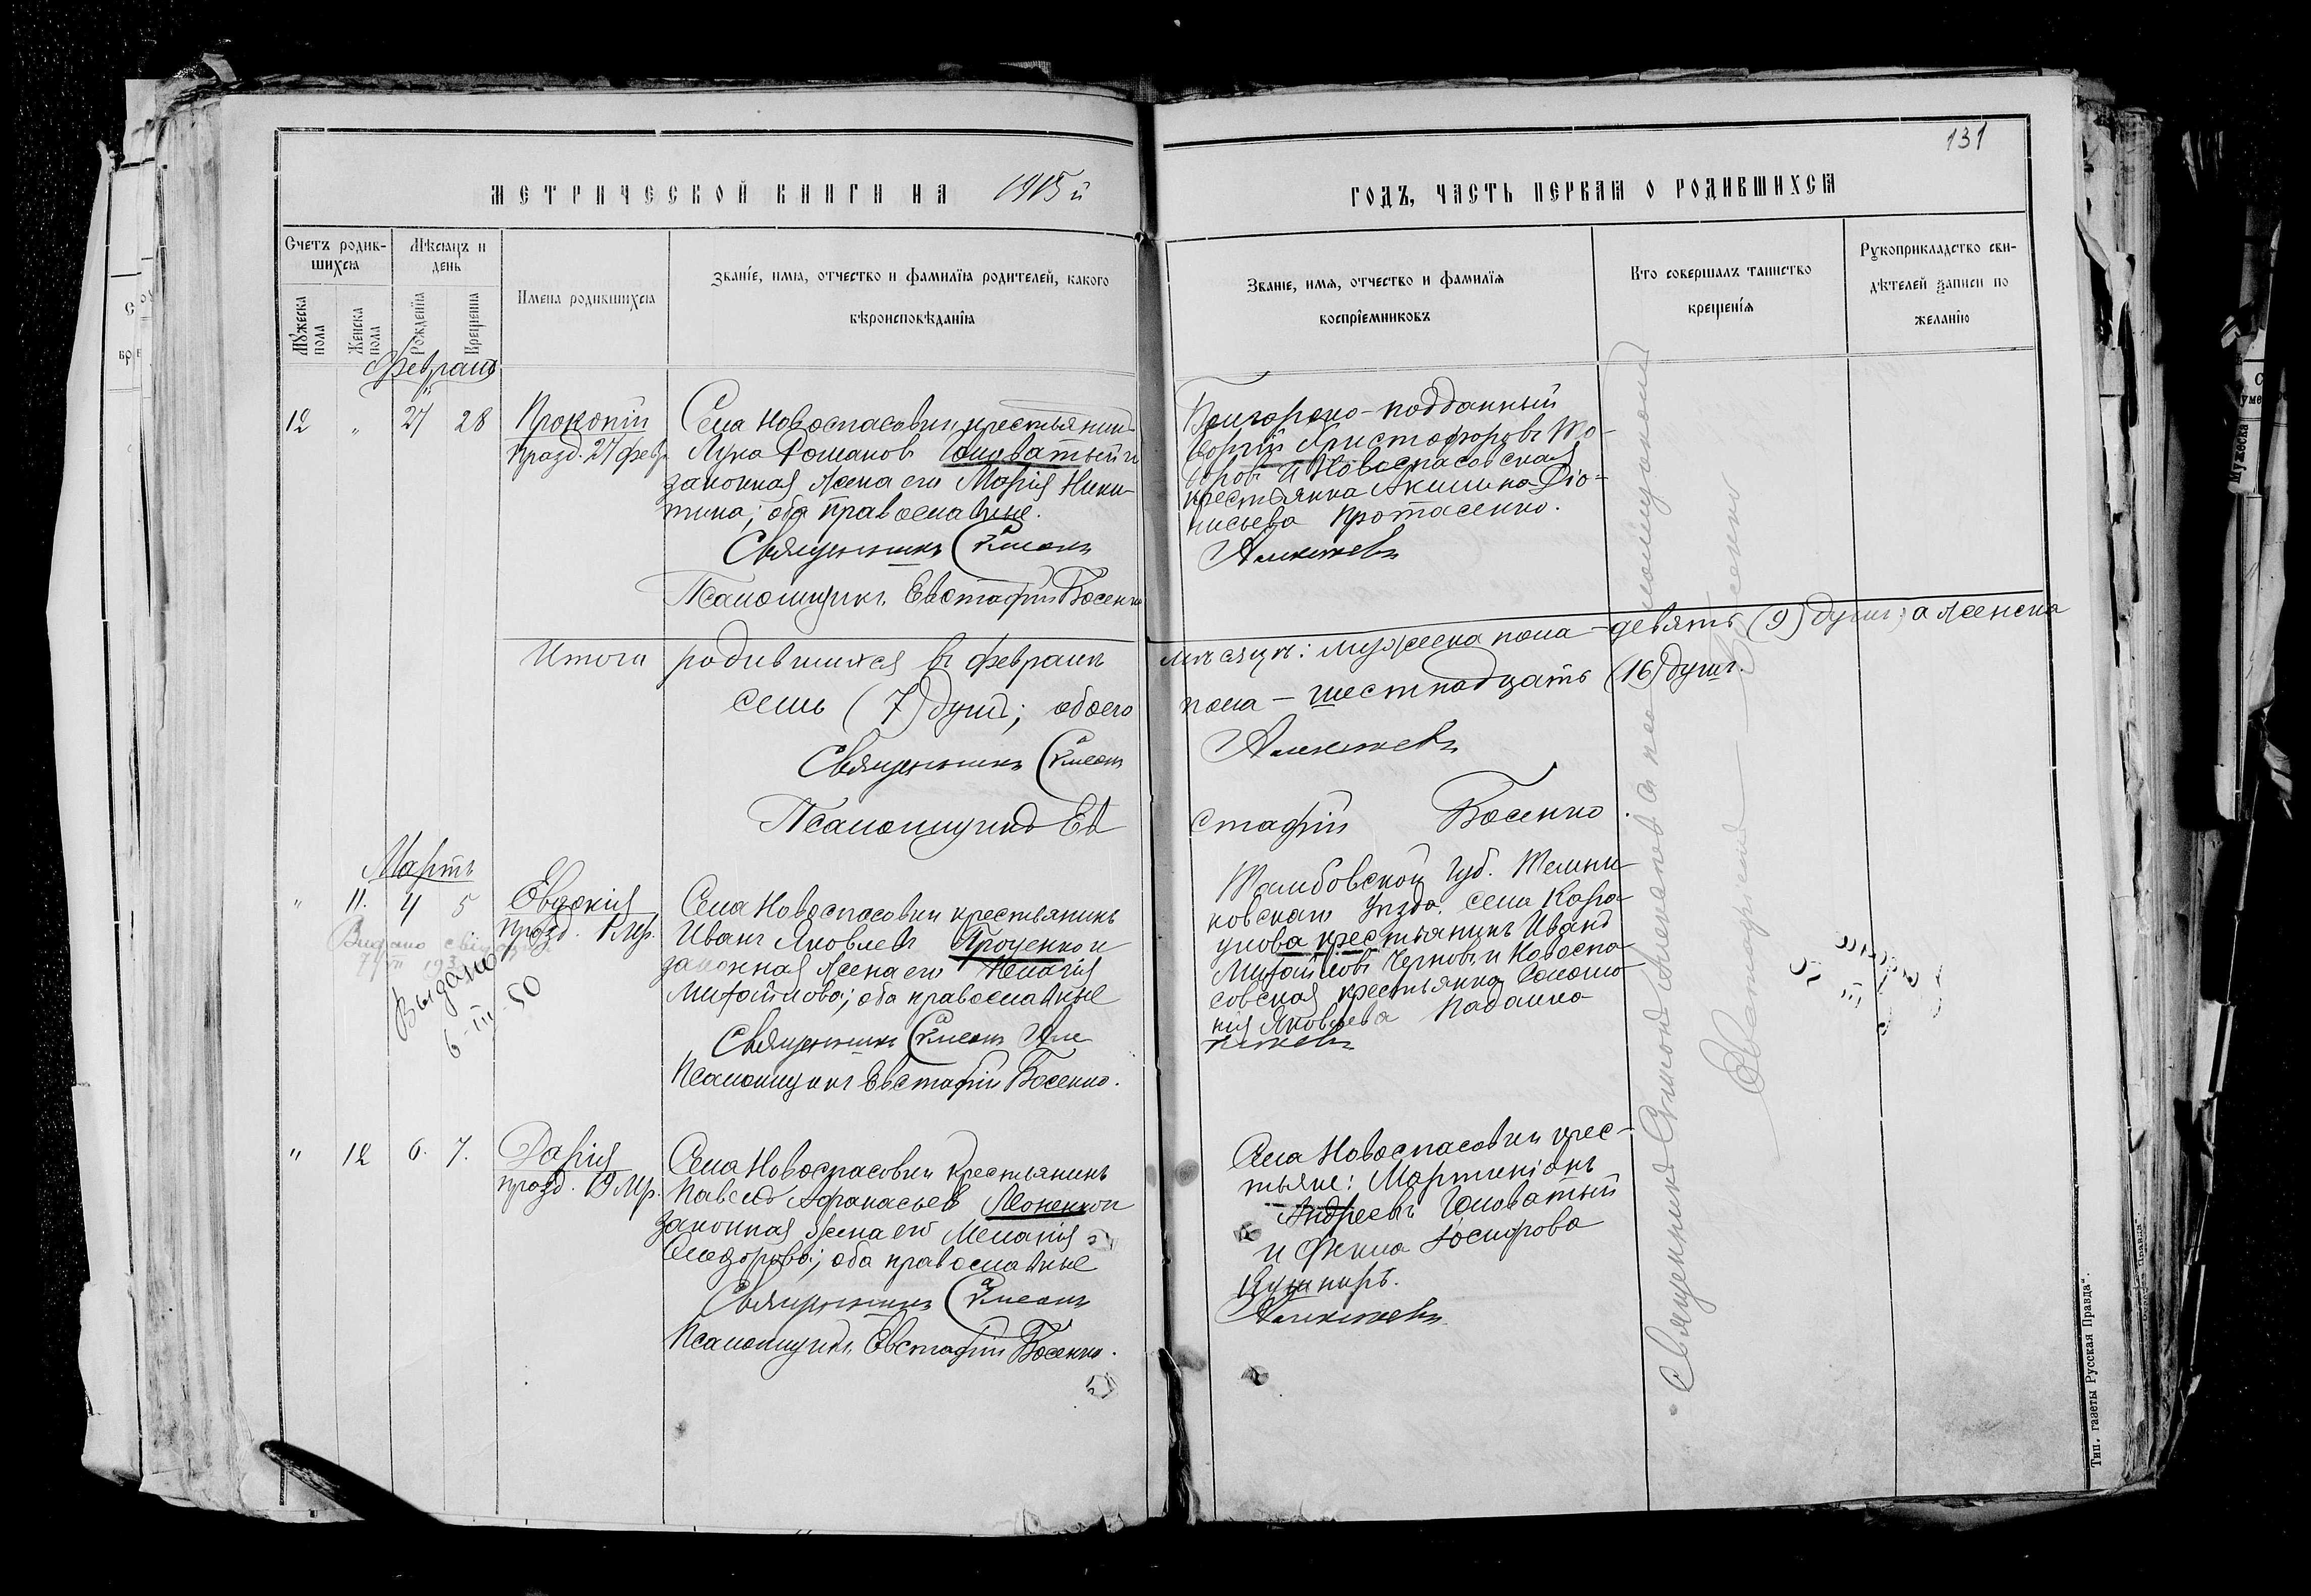 131
МЕТРИЧЕСКОЙ КНИГИ НА 1915 й
ГОДЪ, ЧАСТЬ ПЕРВАЯ О РОДИВШИХСЯ
Счетъ родив-
шихся
Мѣсяцъ и
день
Мужеска
пола
Женска
пола
Рожденія
Крещенія
Имена родившихся
Званіе, имя, отчество и фамилія родителей, какого
вѣроисповѣданія
Званіе, имя, отчество и фамилія
воспріемниковъ
Кто совершалъ таинство
крещенія
Рукоприкладство сви-
дѣтелей записи по
желанію
Февраль
12 " 27 28
Прокопій
празд. 27 февр.
Села Новоспасовки крестьянинъ
Лука Романовъ Головатый и
законная жена его Марія Ники-
тина; оба православные.
Священникъ Симеонъ
Псаломщикъ Евстафій Босенко
Болгарско-подданный
Георгій Христофоровъ То-
доровъ и Новоспасовская
крестьянка Акилина Діо-
нисьева Протасенко.
Алексѣевъ
Итого родившихся въ февралѣ мѣсяцѣ: мужеска пола - девять (9) душъ; а женска
семь (7) душъ; обоего пола - шестнадцать (16) душъ.
Священникъ Симеонъ Алексѣевъ
Псаломщикъ Евстафій Босенко.
Мартъ
" 11. 4 5
Евдокія
празд. 1 Мр.
Видано
Выдано
6-III-50
Села Новоспасовки крестьянинъ
Иванъ Яковлевъ Проценко и
законная жена его Пелагія
Михайлова; оба православные
Священникъ Симеонъ Але
Псаломщикъ Евстафій Босенко.
Тамбовской губ. Темни-
ковскаго уѣзда, села Кара-
улова крестьянинъ Иванъ
Михайловъ Черновъ и Новоспа-
совская крестьянка Соломо-
нія Яковлева Падалка
ксѣевъ
" 12 6. 7.
Дарія
празд. 19 Мр.
Села Новоспасовки крестьянинъ
Павелъ Афанасьевъ Леоненко и
законная жена его Меланія
Феодорова; оба православные
Священникъ Симеонъ
Псаломщикъ Евстафій Босенко.
Села Новоспасовки крес-
тьяне: Мартиніанъ
Андреевъ Головатый
и Фекла Іосифова
Кушниръ.
Алексѣевъ
Священникъ Симеонъ Алексѣевъ и псаломщикомъ
Евстафіемъ Босенко
Тип. газеты Русская Правда".